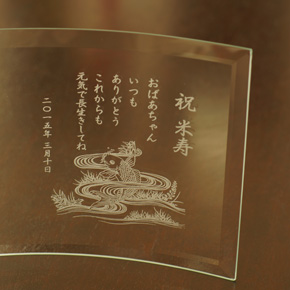 祝 米寿
おばあちゃん
いつも
ありがとう
これからも
元気で長生きしてね
二〇一五年 三月十日